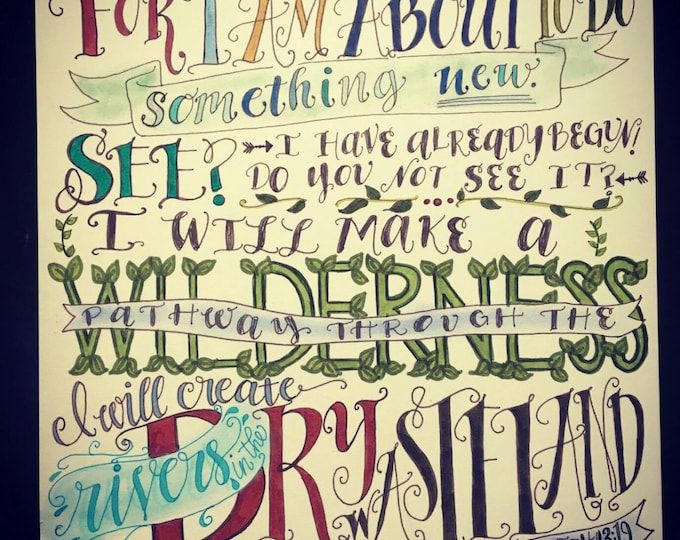 FOR I AM ABOUT TO DO
something new.
SEE? I HAVE ALREADY BEGUN!
DO YOU NOT SEE IT?
I WILL MAKE A
PATHWAY THROUGH THE
WILDERNESS
I will create
rivers in the
DRY WASTELAND
43:19